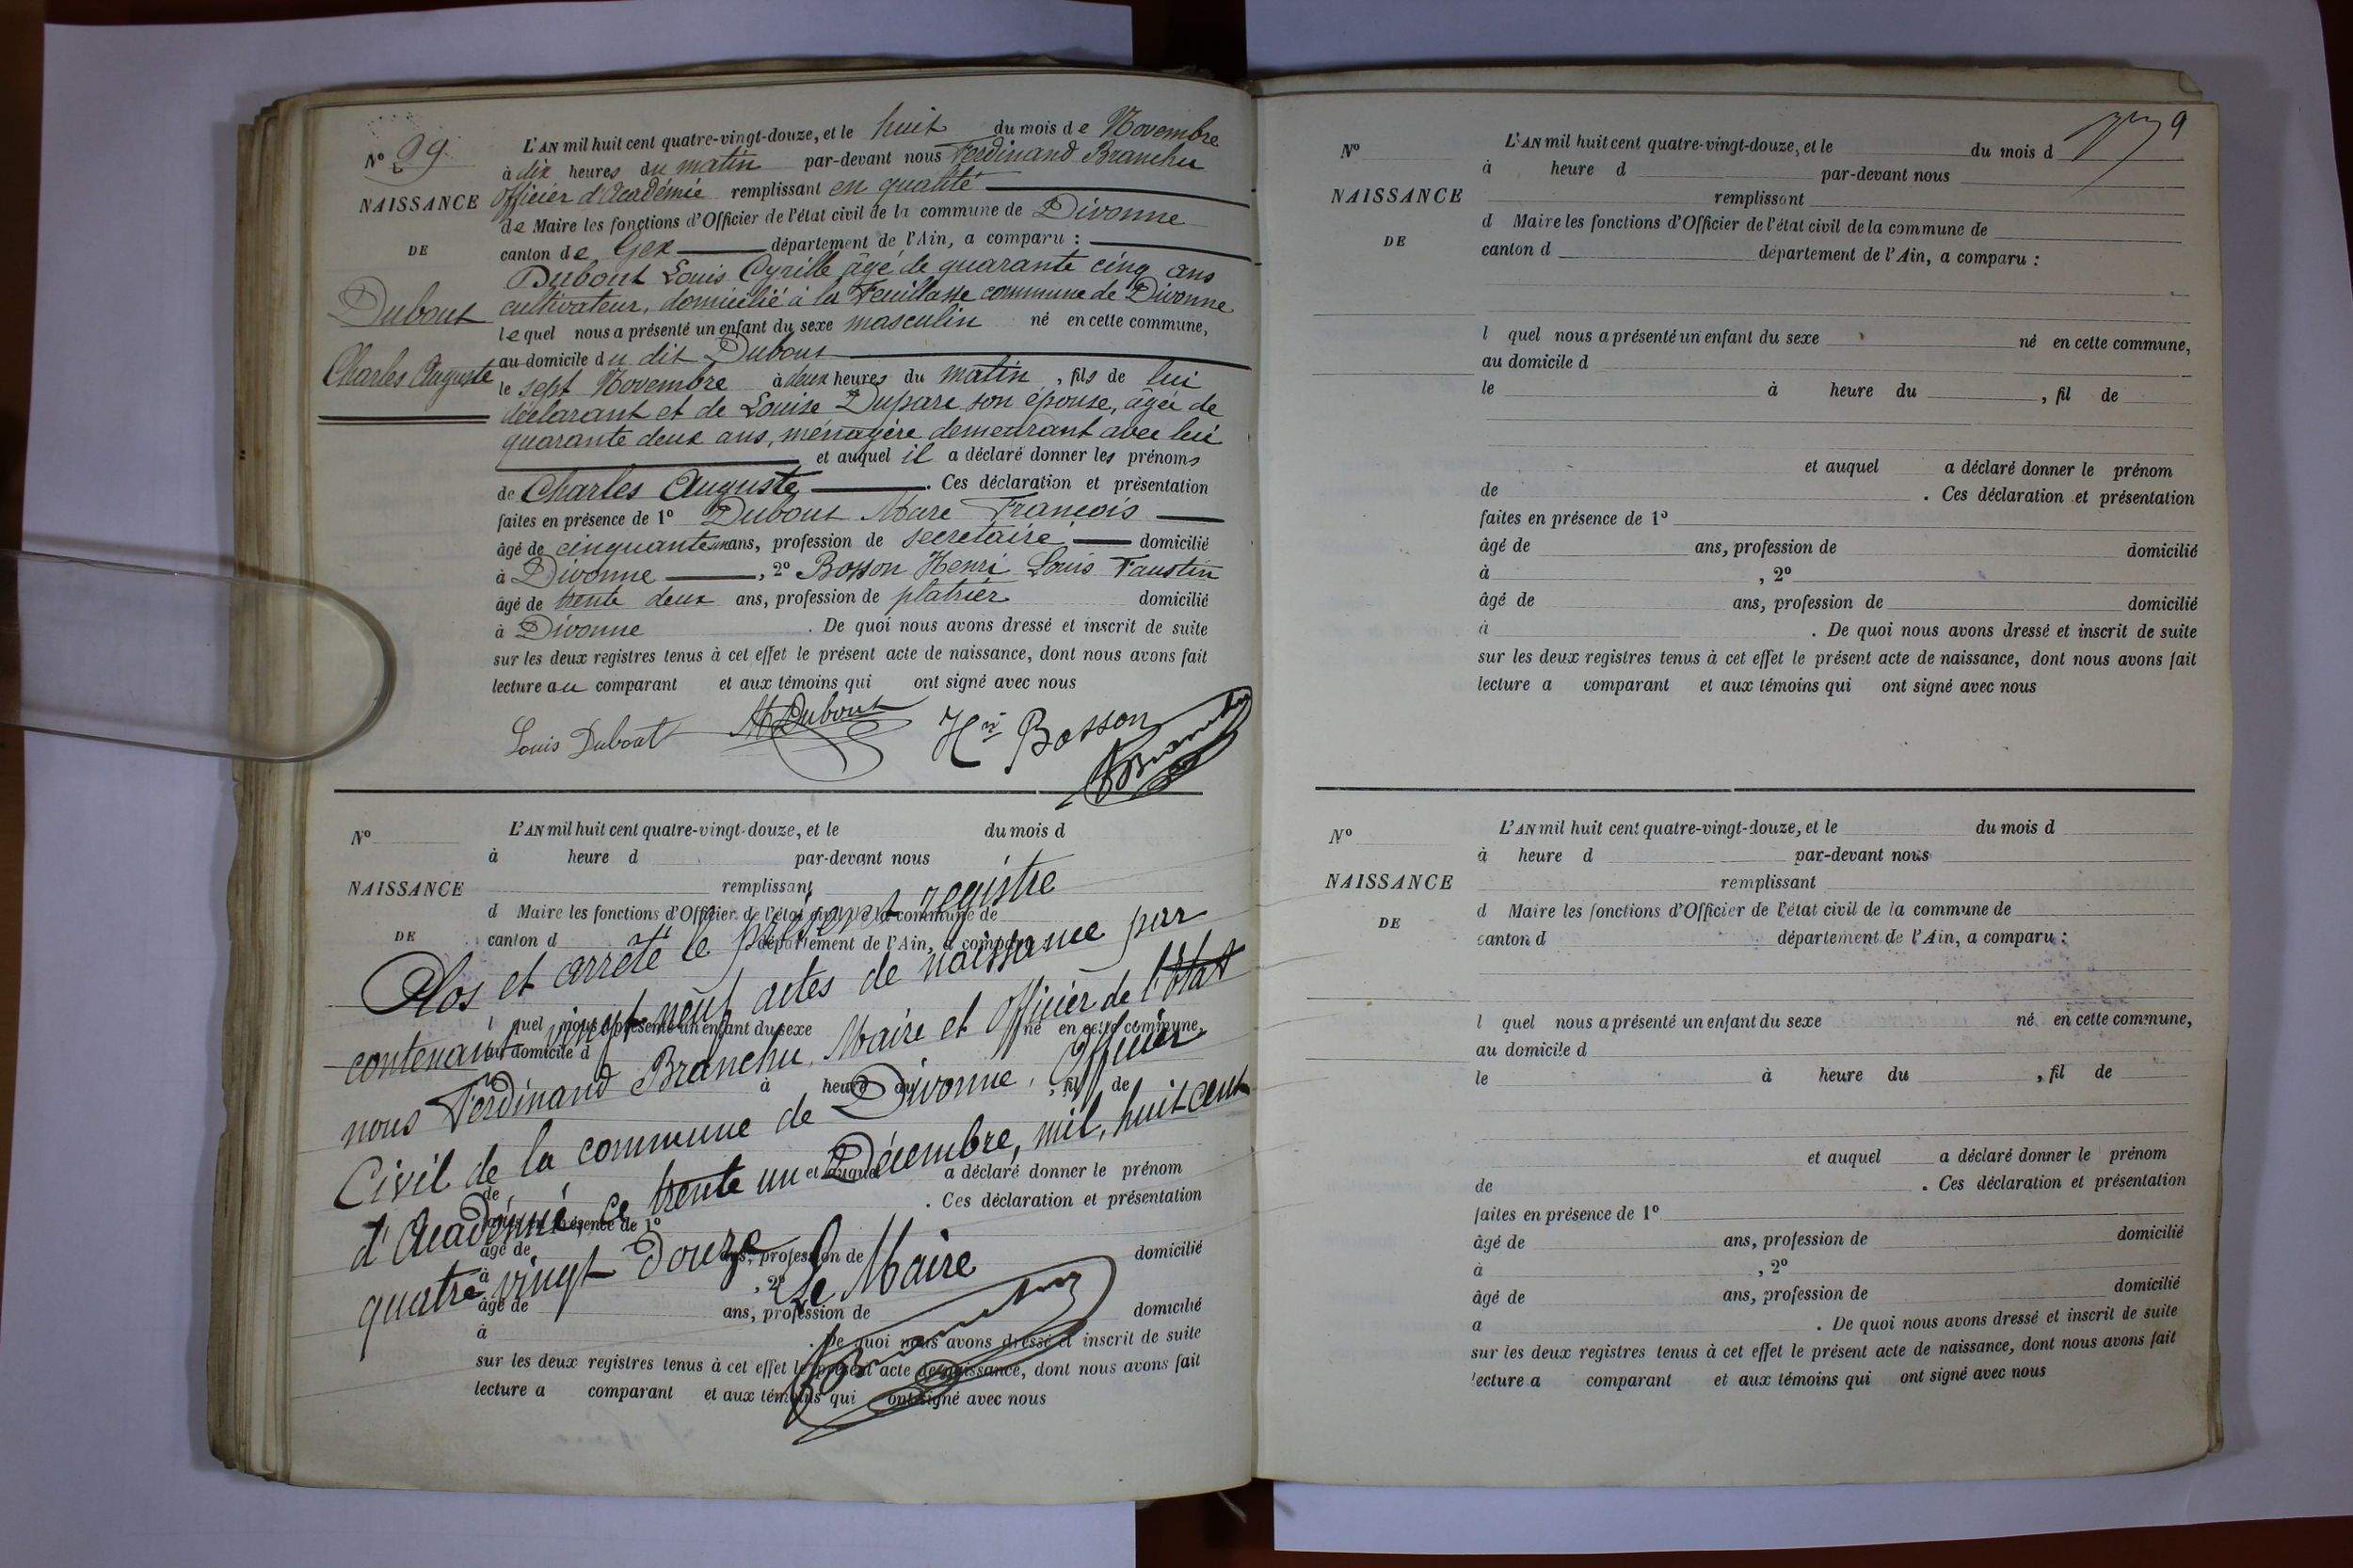 N° 29
NAISSANCE
DE
Dubout
Charles Auguste
L'AN mil huit cent quatre-vingt-douze, et le huit du mois de Novembre
à dix heures du matin par-devant nous Ferdinand Branchu
officier d'Académie remplissant en qualité
de Maire les fonctions d'Officier de l'état civil de la commune de Divonne
canton de Gex département de l'Ain, a comparu :
Dubout Louis Cyrille âgé de quarante cinq ans
cultivateur, domicilié à la Feuillasse commune de Divonne
lequel nous a présenté un enfant du sexe masculin né en cette commune,
au domicile du dit Dubout
le sept Novembre à deux heures du matin, fils de lui
déclarant et de Louise Duparc son épouse, âgée de
quarante deux ans, ménagère demeurant avec lui
et auquel il a déclaré donner les prénoms
de Charles Auguste. Ces déclaration et présentation
faites en présence de 1° Dubout Marc François
âgé de cinquante un ans, profession de secrétaire domicilié
à Divonne, 2° Bosson Henri Louis Faustin
âgé de trente deux ans, profession de platrier domicilié
à Divonne. De quoi nous avons dressé et inscrit de suite
sur les deux registres tenus à cet effet le présent acte de naissance, dont nous avons fait
lecture au comparant et aux témoins qui ont signé avec nous
Louis Dubout M Dubout Hri Bosson
N°
NAISSANCE
DE
L'AN mil huit cent quatre-vingt-douze, et le du mois d
à heure d par-devant nous
remplissant
d Maire les fonctions d'Officier de l'état civil de la commune de
canton d département de l'Ain, a comparu
l quel nous a présenté un enfant du sexe né en cette commune,
au domicile d
à heure du , fil de
et auquel a déclaré donner le prénom
de . Ces déclaration et présentation
faites en présence de 1°
âgé de ans, profession de domicilié
à , 2°
âgé de ans, profession de domicilié
à . De quoi nous avons dressé et inscrit de suite
sur les deux registres tenus à cet effet le présent acte de naissance, dont nous avons fait
lecture a comparant et aux témoins qui ont signé avec nous
Clos et arrêté le présent registre
contenant vingt-neuf actes de naissance par
nous Ferdinand Branchu, Maire et Officier de l'Etat
Civil de la commune de Divonne, Officier
d'Académie, ce trente un Décembre, mil, huit cent
quatre vingt douze
Le Maire
9
N°
NAISSANCE
DE
L'AN mil huit cent quatre-vingt-douze, et le du mois d
à heure d par-devant nous
remplissant
d Maire les fonctions d'Officier de l'état civil de la commune de
canton d département de l'Ain, a comparu :
l quel nous a présenté un enfant du sexe né en cette commune,
au domicile d
le à heure du , fil de
et auquel a déclaré donner le prénom
de . Ces déclaration et présentation
faites en présence de 1°
âgé de ans, profession de domicilié
à , 2°
âgé de ans, profession de domicilié
à . De quoi nous avons dressé et inscrit de suite
sur les deux registres tenus à cet effet le présent acte de naissance, dont nous avons fait
lecture a comparant et aux témoins qui ont signé avec nous
N°
NAISSANCE
DE
L'AN mil huit cent quatre-vingt-douze, et le du mois d
à heure d par-devant nous
remplissant
d Maire les fonctions d'Officier de l'état civil de la commune de
canton d département de l'Ain, a comparu :
l quel nous a présenté un enfant du sexe né en cette commune,
au domicile d
le à heure du , fil de
et auquel a déclaré donner le prénom
de . Ces déclaration et présentation
faites en présence de 1°
âgé de ans, profession de domicilié
à , 2°
âgé de ans, profession de domicilié
a . De quoi nous avons dressé et inscrit de suite
sur les deux registres tenus à cet effet le présent acte de naissance, dont nous avons fait
lecture a comparant et aux témoins qui ont signé avec nous